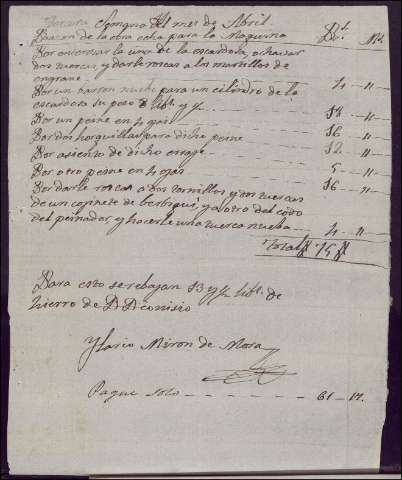 Semana del mes de Abril
Razon de la obra echa para la Maquina Rs. Ms.
Por enrexar la una de la escardosa, ochavar
dos tuercas, y darle roscas a los murillos de
engrane 4 "
Por un barron nuebo para un cilindro de la
escardosa su peso 18 "
Por un peine en 4 ojas 18 "
Por dos horquillas para dicho peine 12 "
Por asiento de dicho 5 "
Por otro peine en 4 ojas 16 "
Por darle roscas a dos tornillos y dos tuercas
de un cojinete de berbiqui, y a otro del codo
del peinador, y hacerle una tuerca nueba 4 "
Total 75
Para esto se rebajan 13 y ½ lib.s de
hierro de D. Dionisio
Ylario Miron de Mora
Pagué solo 61 17.